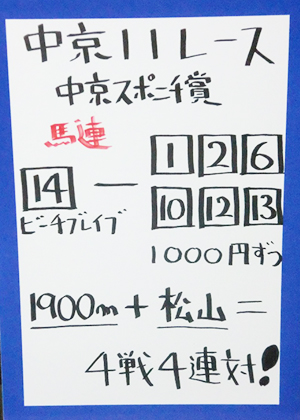 中京11レース
中京スポニチ賞
馬連
1 2 6
14 ー
10 12 13
ビーチブレイブ
1000円ずつ
1900m+松山=
4戦4連対!